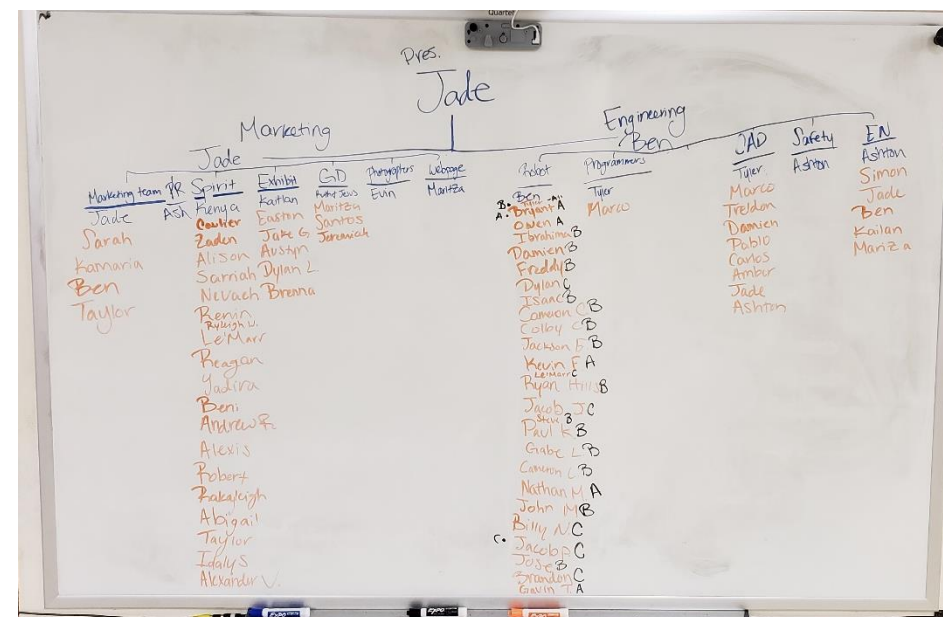 Quartet
Pres.
Jade
Marketing
Engineering
Jade
Ben
Marketing team
Jade
Sarah
Kamaria
Ben
Taylor
PR
Ash
Spirit
Kenya
Zaden
Alison
Samiah
Nevaeh
Renin
Ryleigh U.
Le'Marr
Reagan
Yadira
Beni
Andrew R
Alexis
Robert
Rakayleigh
Abigail
Taylor
Idalys
Alexander V.
Exhibit
Kaitlan
Easton
Jake G
Austyn
Dylan L
Brenna
GD
Maritza
Santos
Jeremiah
Photographers
Evin
Webpage
Maritza
Robot
Ben
B. Tyler
A. Bryant A
Owen A
Ibrahima B
Damien B
Freddy B
Dylan C
Isaac B
Cameron C B
Colby C B
Jackson E B
Kevin F A
Le'Marr C
Ryan Hills B
Jacob J C
Steve B
Paul K B
Gabe L B
Cameron L B
Nathan M A
John M B
Billy N C
C. Jacob P C
Jose B
Brandon C
Gavin T. A
Programmers
Tyler
Marco
Tyler
Marco
Treldon
Damien
Pablo
Carlos
Amber
Jade
Ashton
Safety
Ashton
EN
Ashton
Simon
Jade
Ben
Kailan
Mariza
EXPO
EXPO
EXPO